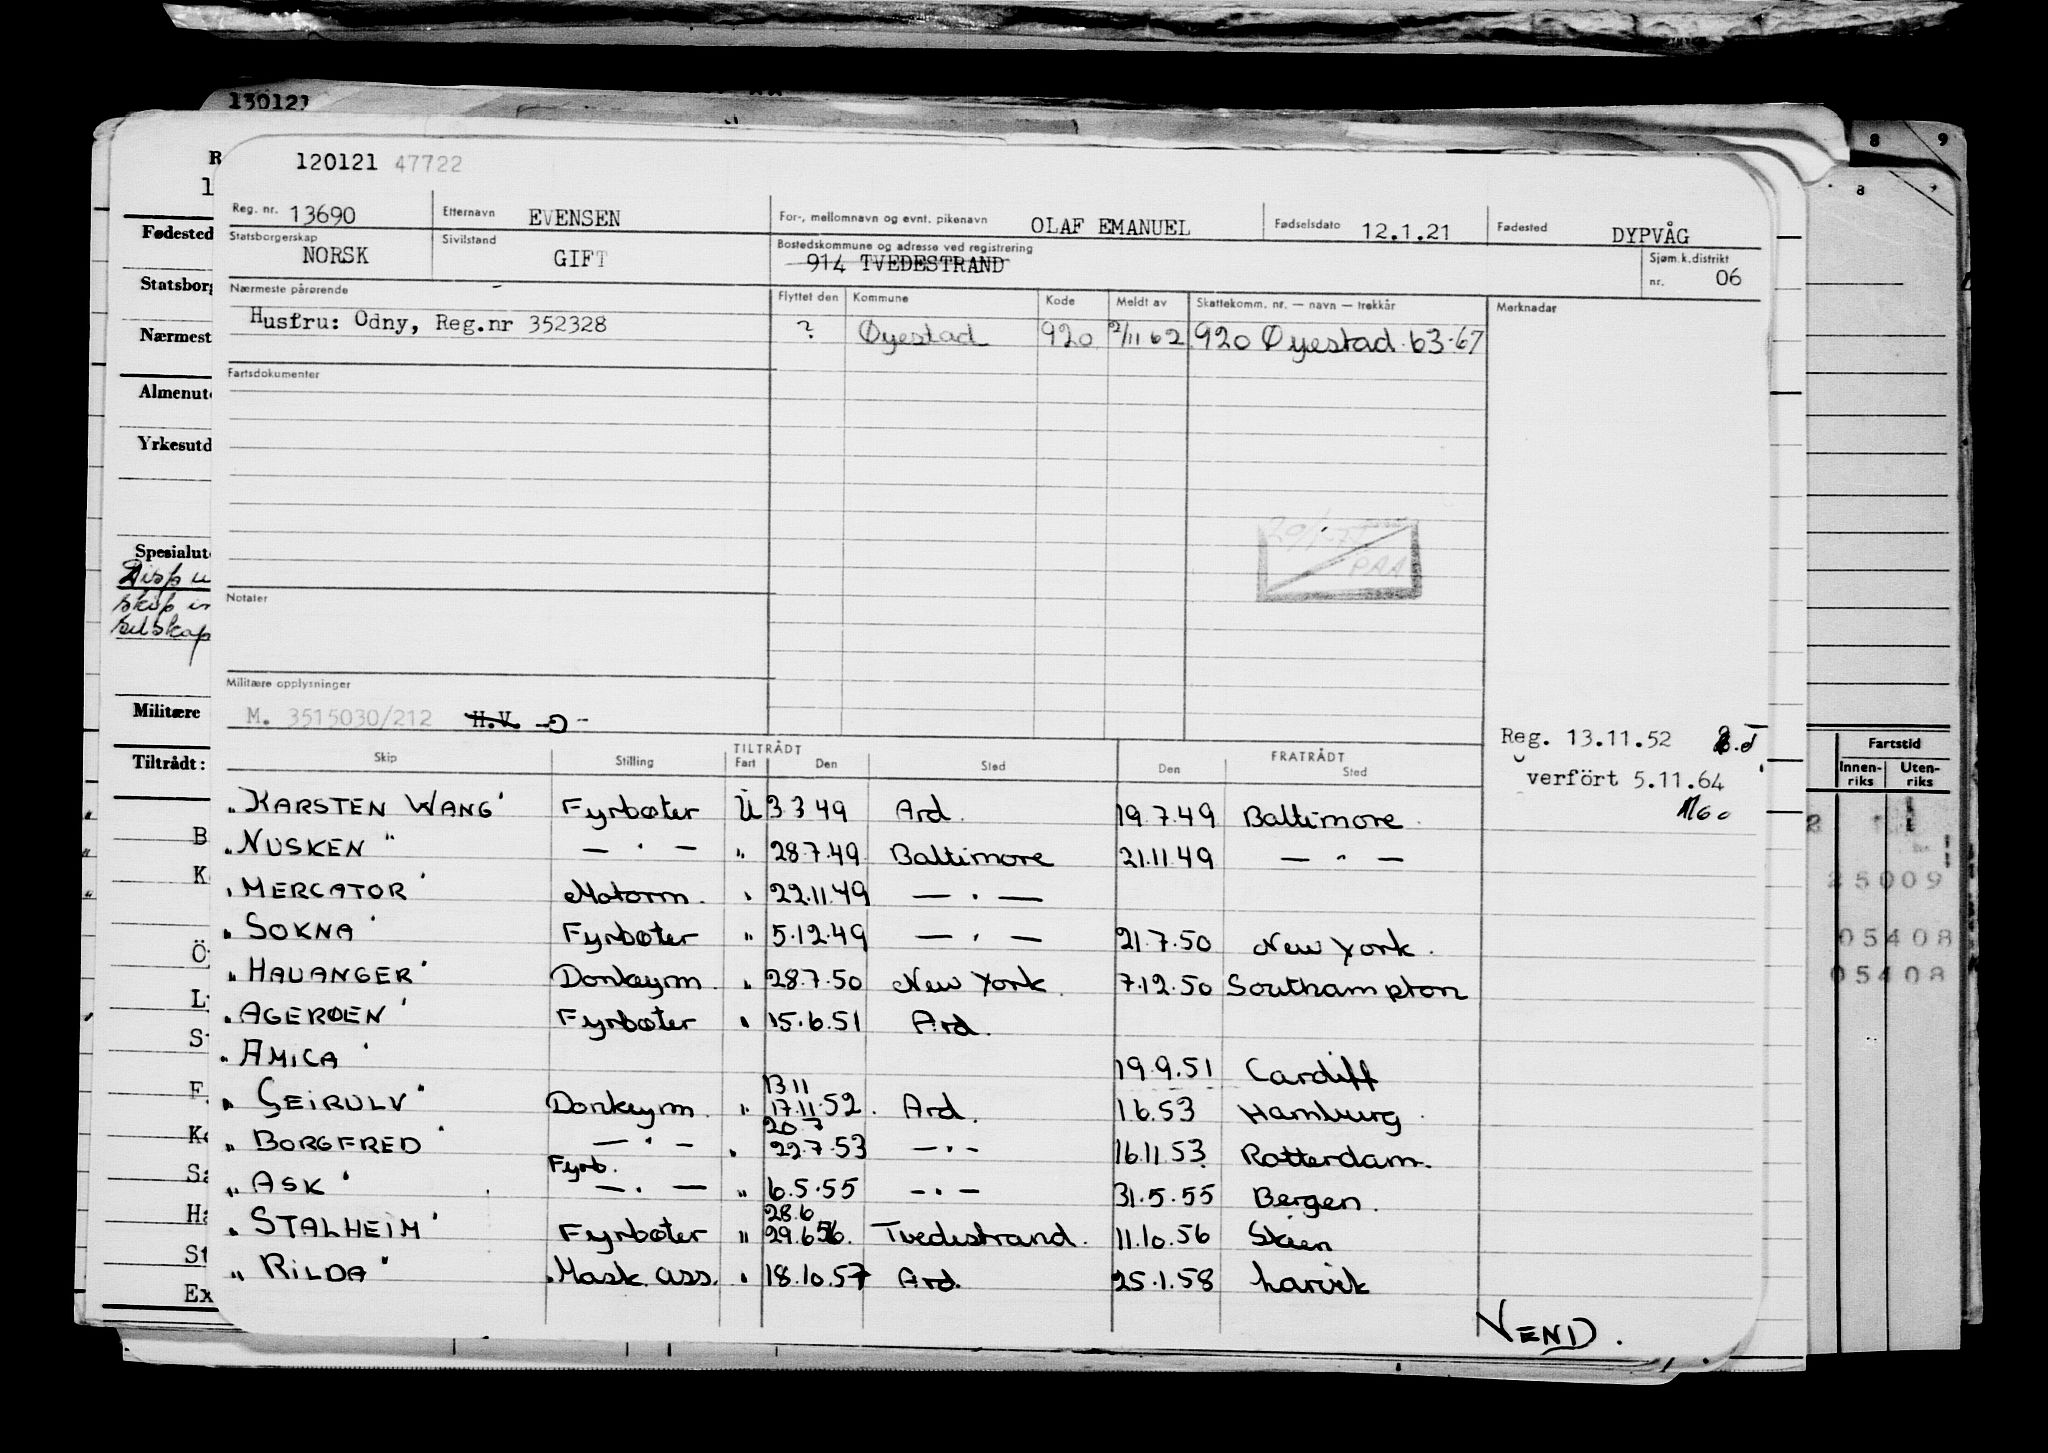 130121
8 9
8
120121 47722
Reg. nr. 13690 Etternavn EVENSEN For-, mellomnavn og evnt. pikenavn OLAF EMANUEL Fødselsdato 12.1.21 Fødested DYPVÅG
Statsborgerskap NORSK Sivilstand GIFT Bostedskommune og adresse ved registrering 914 TVEDESTRAND Sjøm.k.distrikt nr. 06
Nærmeste pårørende Flyttet den Kommune Kode Meldt av Skattekomm. nr. — navn — trekkår Merknader
Husfru: Odny, Reg.nr 352328 ? Øyestad 920 2/11 62 920 Øyestad 63-67
Fartsdokumenter
PAA
Notater
Militære opplysninger
M. 3515030/212 H.V.
Reg. 13.11.52
verfört 5.11.64
TILTRÅDT FRATRÅDT
Skip Stilling Fart Den Sted Den Sted
"KARSTEN WANG" Fyrbøter U 3 3 49 Ard. 19.7.49 Baltimore.
"NUSKEN" — " — " 28.7.49 Baltimore 21.11.49 — " —
"MERCATOR" Motorm. " 22.11.49 — " —
"SOKNA" Fyrbøter " 5.12.49 — " — 21.7.50 New York.
"HAVANGER" Donkeym. " 28.7.50 New York. 7.12.50 Southampton
"AGERØEN" Fyrbøter " 15.6.51 Ard.
"AMICA" 19.9.51 Cardiff
13 11
"GEIRULV" Donkeym. " 17.11.52. Ard. 1.6.53 Hamburg.
20 7
"BORGFRED" — " — " 22.7.53 — " — 16.11.53 Rotterdam.
Fyrb.
"ASK" — " — " 6.5.55 — " — 31.5.55 Bergen.
28.6
"STALHEIM" Fyrbøter " 29.6.56. Tvedestrand. 11.10.56 Skien
"RILDA" Mask. ass. " 18.10.57 Ard. 25.1.58 Larvik
VEND.
Fødested
Statsborg
Nærmest
Almenut
Yrkesutd
Spesialut
skip in
selskap
Militære
Tiltrådt:
Fartstid
Innen- riks Uten- riks
25009
05408
05408